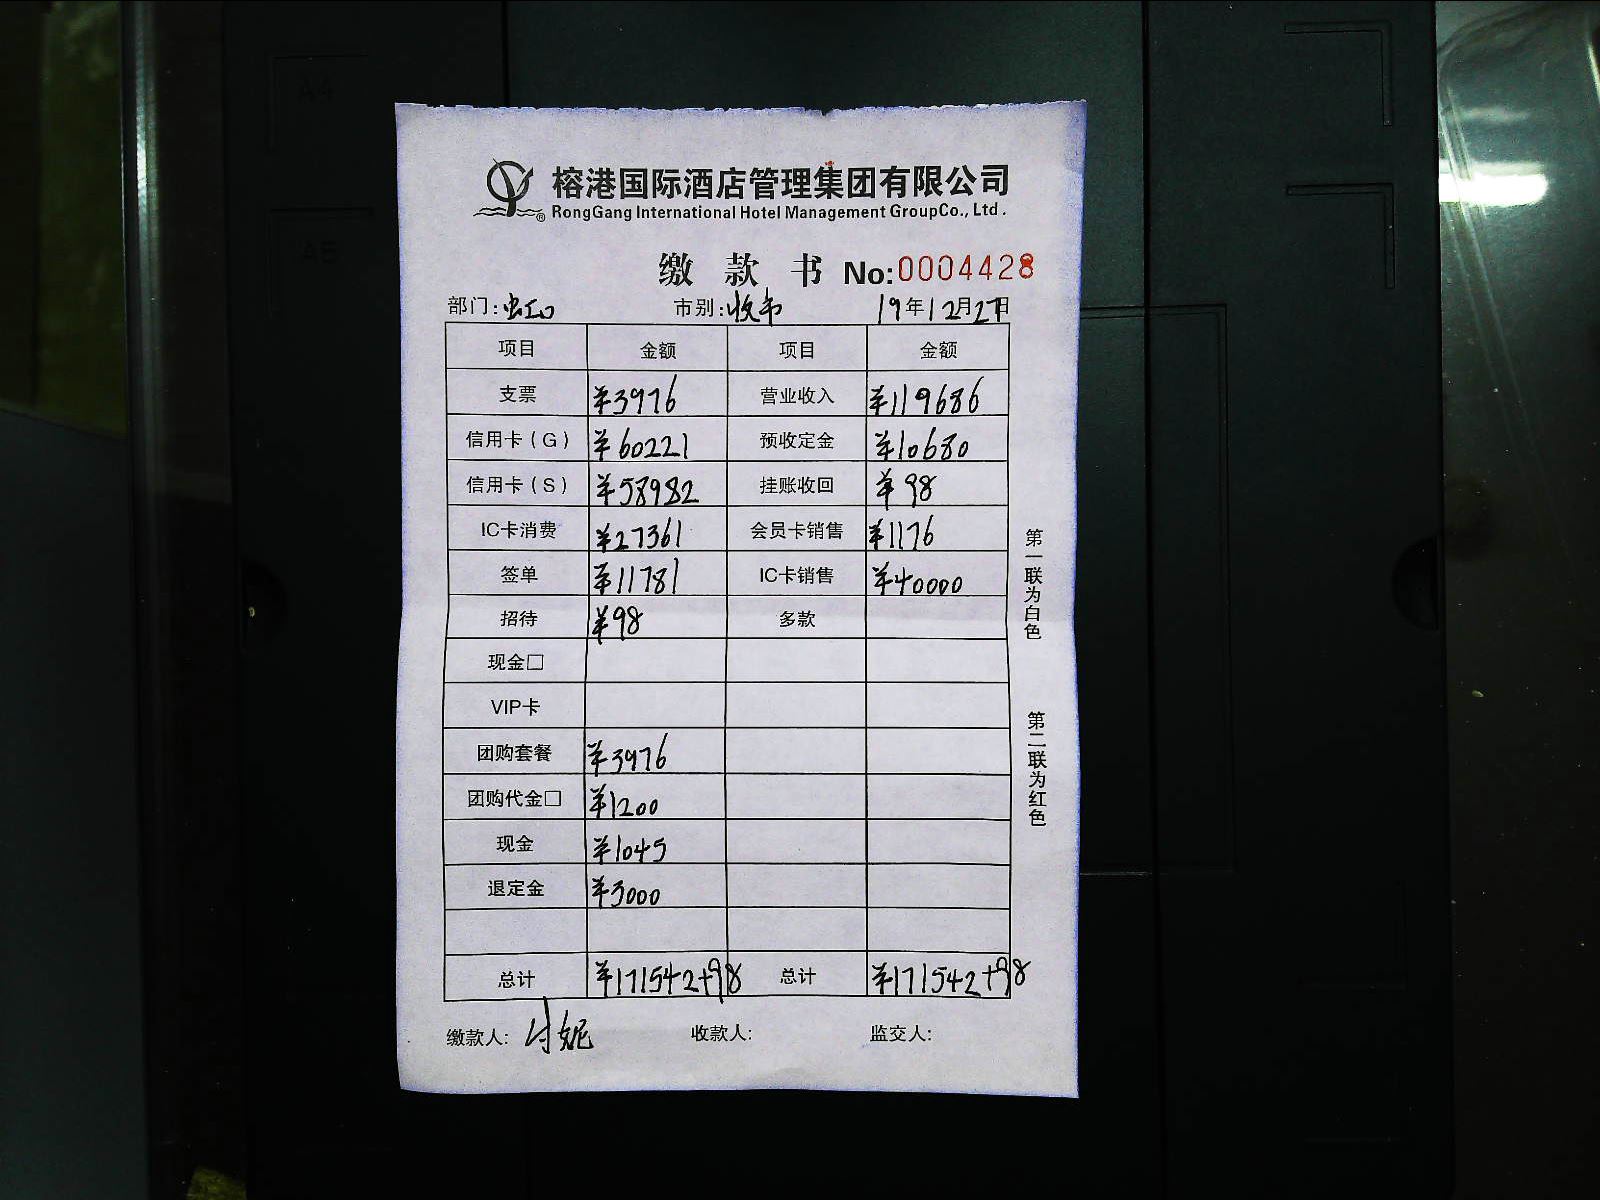 榕港国际酒店管理集团有限公司
RongGang International Hotel Management GroupCo., Ltd.
缴 款 书 No:0004428
部门:虹口 市别:收市 19年12月27日
项目 金额 项目 金额
支票 ¥3976 营业收入 ¥119686
信用卡(G) ¥60221 预收定金 ¥10680
信用卡(S) ¥58982 挂账收回 ¥98
IC卡消费 ¥27361 会员卡销售 ¥1176
签单 ¥11781 IC卡销售 ¥40000
招待 ¥98 多款
现金□
VIP卡
团购套餐 ¥3976
团购代金□ ¥1200
现金 ¥1045
退定金 ¥3000
总计 ¥171542+98 总计 ¥171542+98
缴款人: 付妮 收款人: 监交人:
第一联为白色
第二联为红色
A4
A5